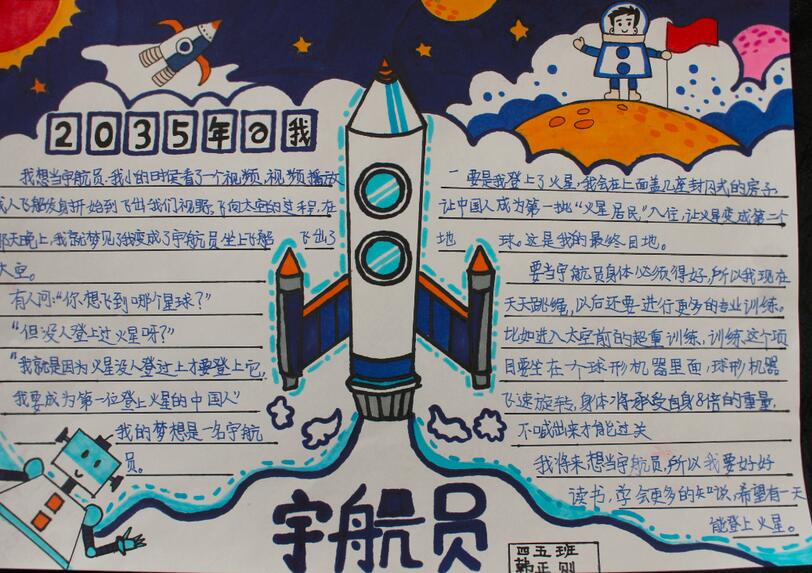 2035年の我
我想当宇航员.我小的时侯看了一个视频,视频播放
人飞船发身开始到飞出我们视野,飞向太空的过程,在
那天晚上,我就梦见了我变成了宇航员坐上飞船 飞出了
太空。
有人问:“你想飞到哪个星球?”
“但没人登上过火星呀?”
“我就是因为火星没人登过上才要登上它,
我要成为第一位登上火星的中国人”
我的梦想是一名宇航
员。
要是我登上了火星,我会在上面盖几座封闭式的房子.
让中国人成为第一批“火星居民”入住,让火星变成第二个
地 球。这是我的最终目地。
要当宇航员身体必须得好,所以我现在
天天跳绳,以后还要进行更多的专业训练。
比如进入太空前的超重训练,训练这个项
目要坐在一个球形机器里面,球形机器
飞速旋转,身体将承受自身8倍的重量.
不喊出来才能过关
我将来想当宇航员,所以我要好好
读书,学会更多的知识,希望有一天
能登上火星。
宇航员
四五班
韩正则